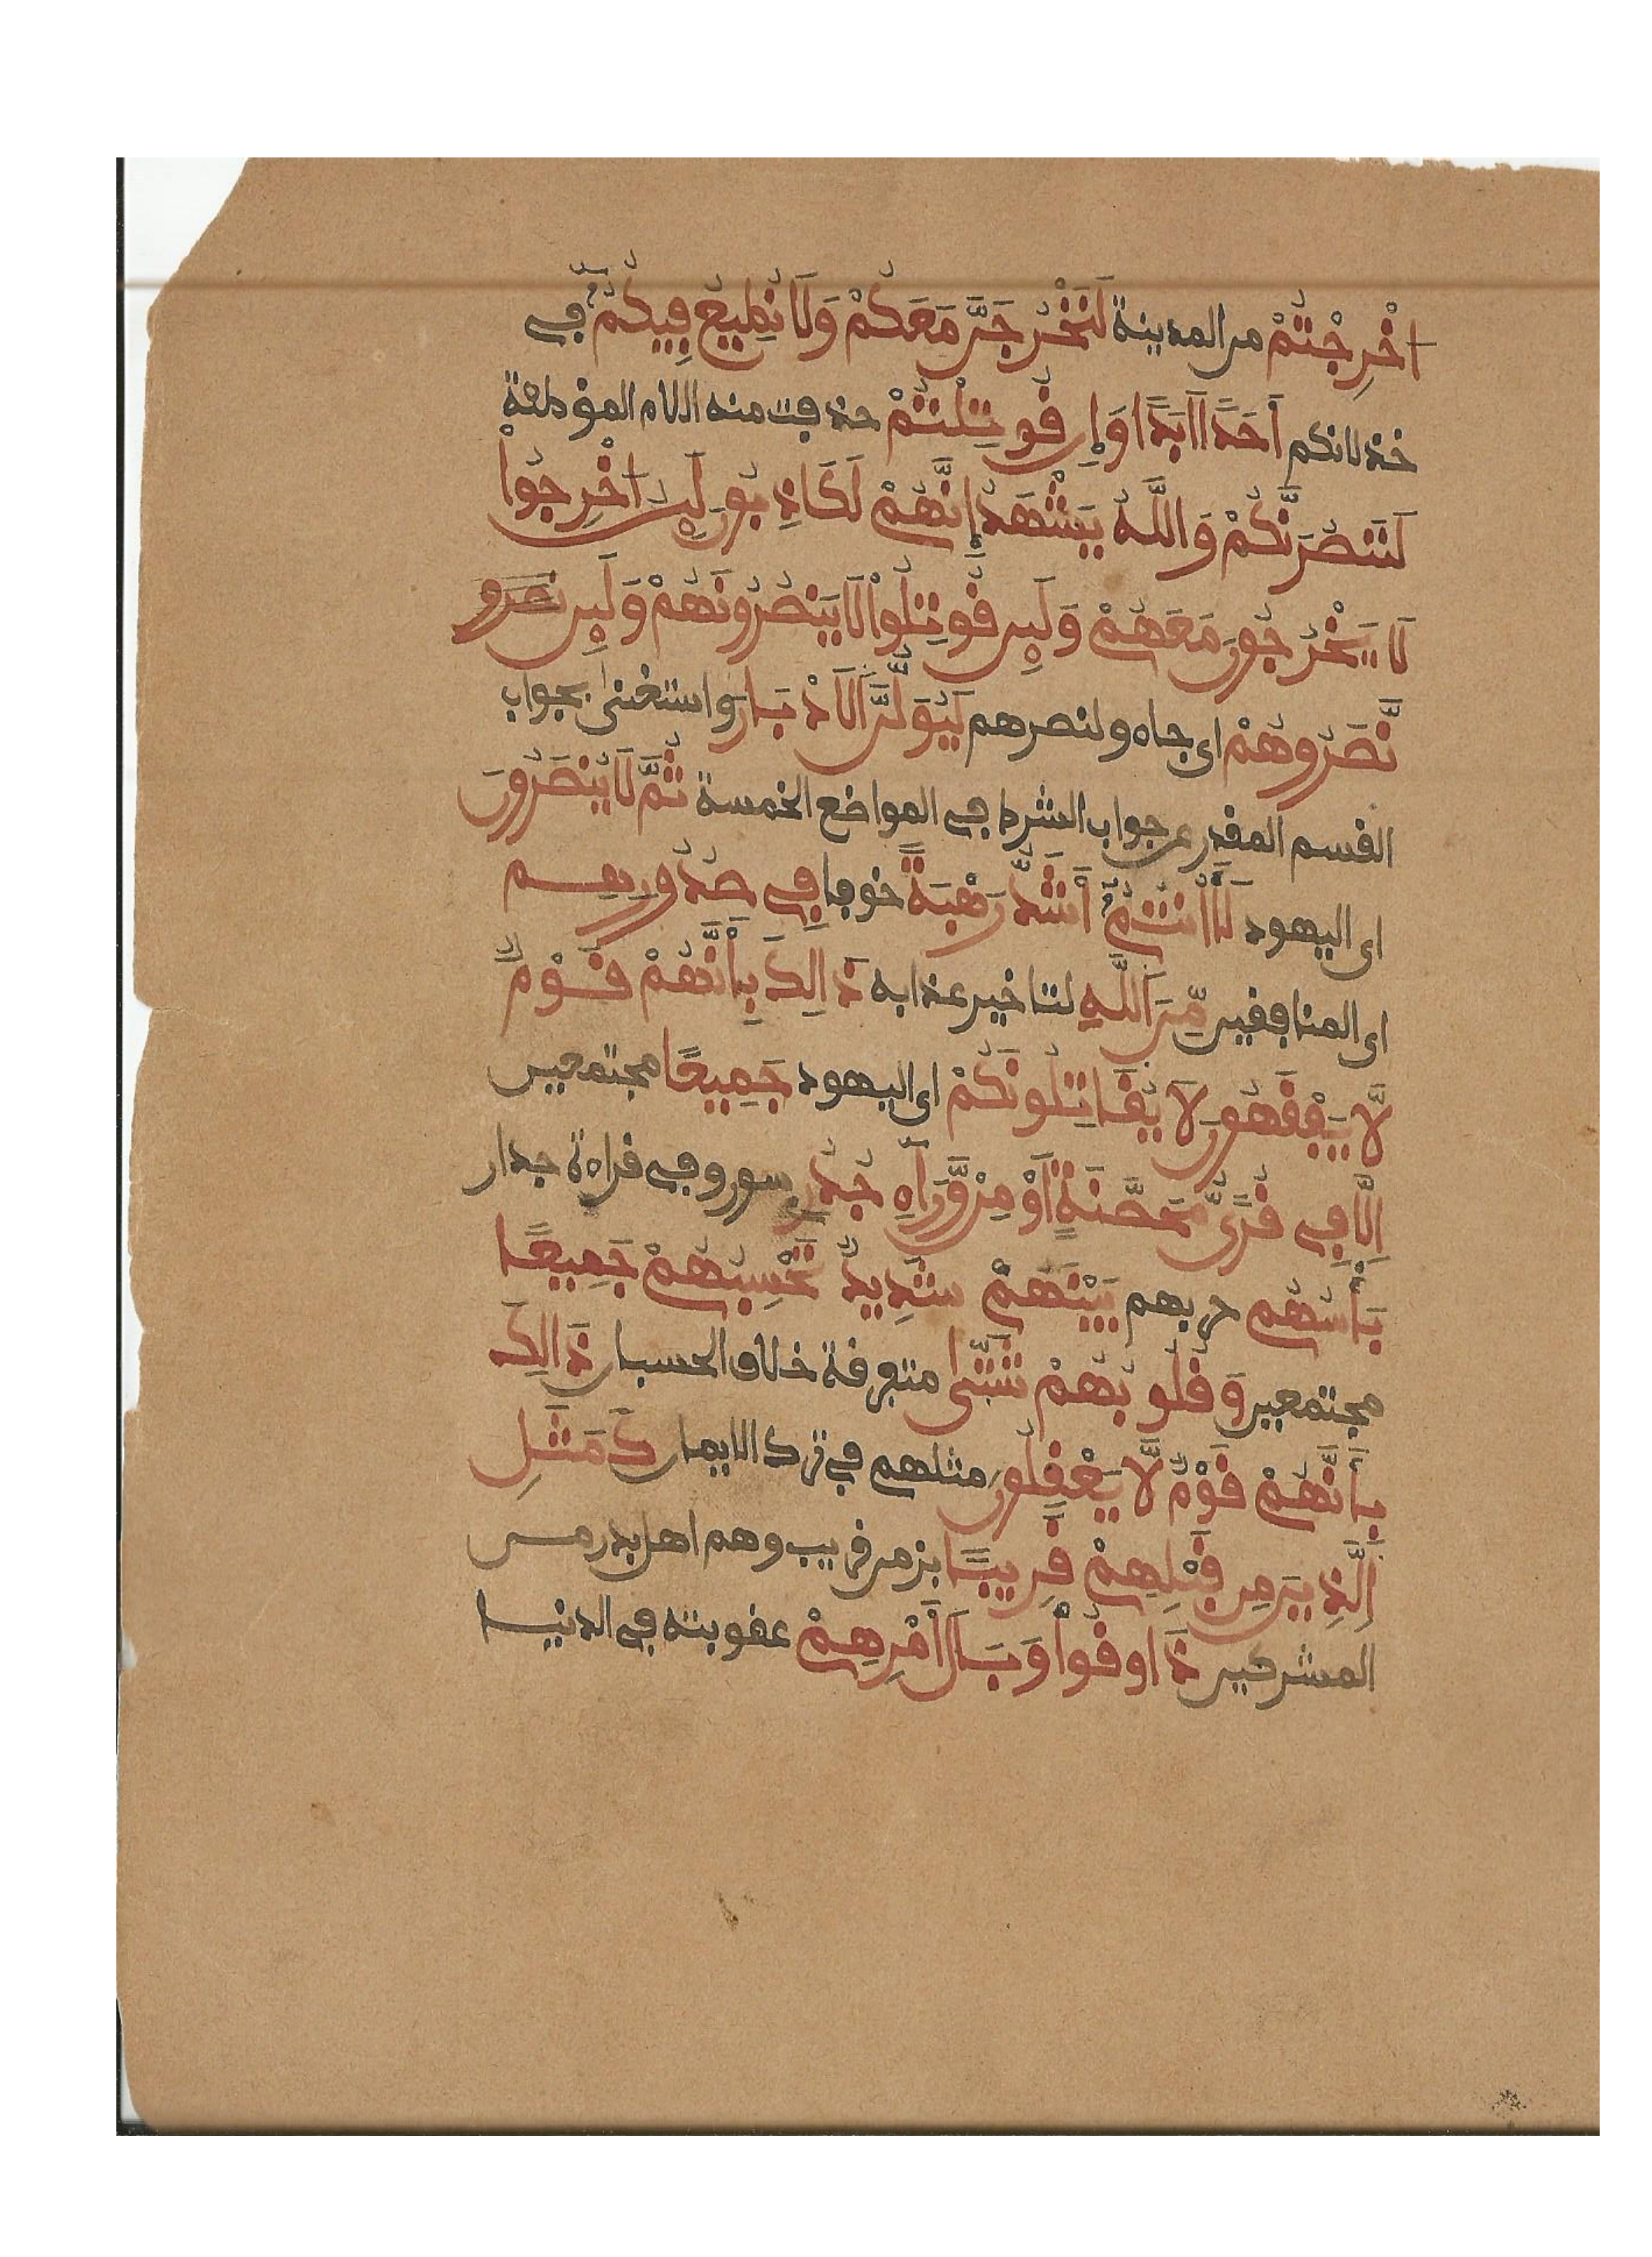 اُخْرِجْتُمْ من المدينة لَنَخْرُجَنَّ مَعَكُمْ وَلَا نُطِيعُ فِيكُمُ في
خذلانكم أَحَدًا أَبَدًا وَإِن قُوتِلْتُمْ حذفت منه اللام الموطئة
لَنَنصُرَنَّكُمْ وَاللَّهُ يَشْهَدُ إِنَّهُمْ لَكَاذِبُونَ لَئِنْ اُخْرِجُواْ
لَا يَخْرُجُونَ مَعَهُمْ وَلَئِن قُوتِلُواْ لَا يَنصُرُونَهُمْ وَلَئِن نصرو
نَّصَرُوهُمْ اى جاه ولنصرهم لَيُوَلُّنَّ اَلَادْبَارَ واستغنى بجواب
القسم المقدر عن جواب الشرط في المواضع الخمسة ثُمَّ لَا يُنصَرُونَ
اى اليهود لَأَانتُمُ أَشَدُّ رَهْبَةً خوفا فِي صُدُورِهِم
اى المنافقين مِّنَ اَللَّهِ لتاخير عذابه ذَالِكَ بِأَنَّهُمْ قَوْمٌ
لَّا يَفْقَهُونَ لَا يُقَاتِلُونَكُمْ اى اليهود جَمِيعًا مجتمعين
إِلَّا فِي قُرًى مُّحَصَّنَةٍ أَوْ مِنْ وَّرَآءِ جُدُرٍ سور وفي قراءة جدار
بَأْسُهُم حربهم بَيْنَهُمْ شَدِيدٌ تَحْسِبُهُمْ جَمِيعًا
مجتمعين وَقُلُوبُهُمْ شَتَّى متفرقة خلاف الحسبان ذَالِكَ
بِأَنَّهُمْ قَوْمٌ لَّا يَعْقِلُونَ مثلهم في ترك الايمان كَمَثَلِ
اَلَّذِينَ مِن قَبْلِهِمْ قَرِيبًا بزمن قريب وهم اهل بدر من
المشركين ذَاوقُواْ وَبَالَ أَمْرِهِمْ عقوبته في الدنيا